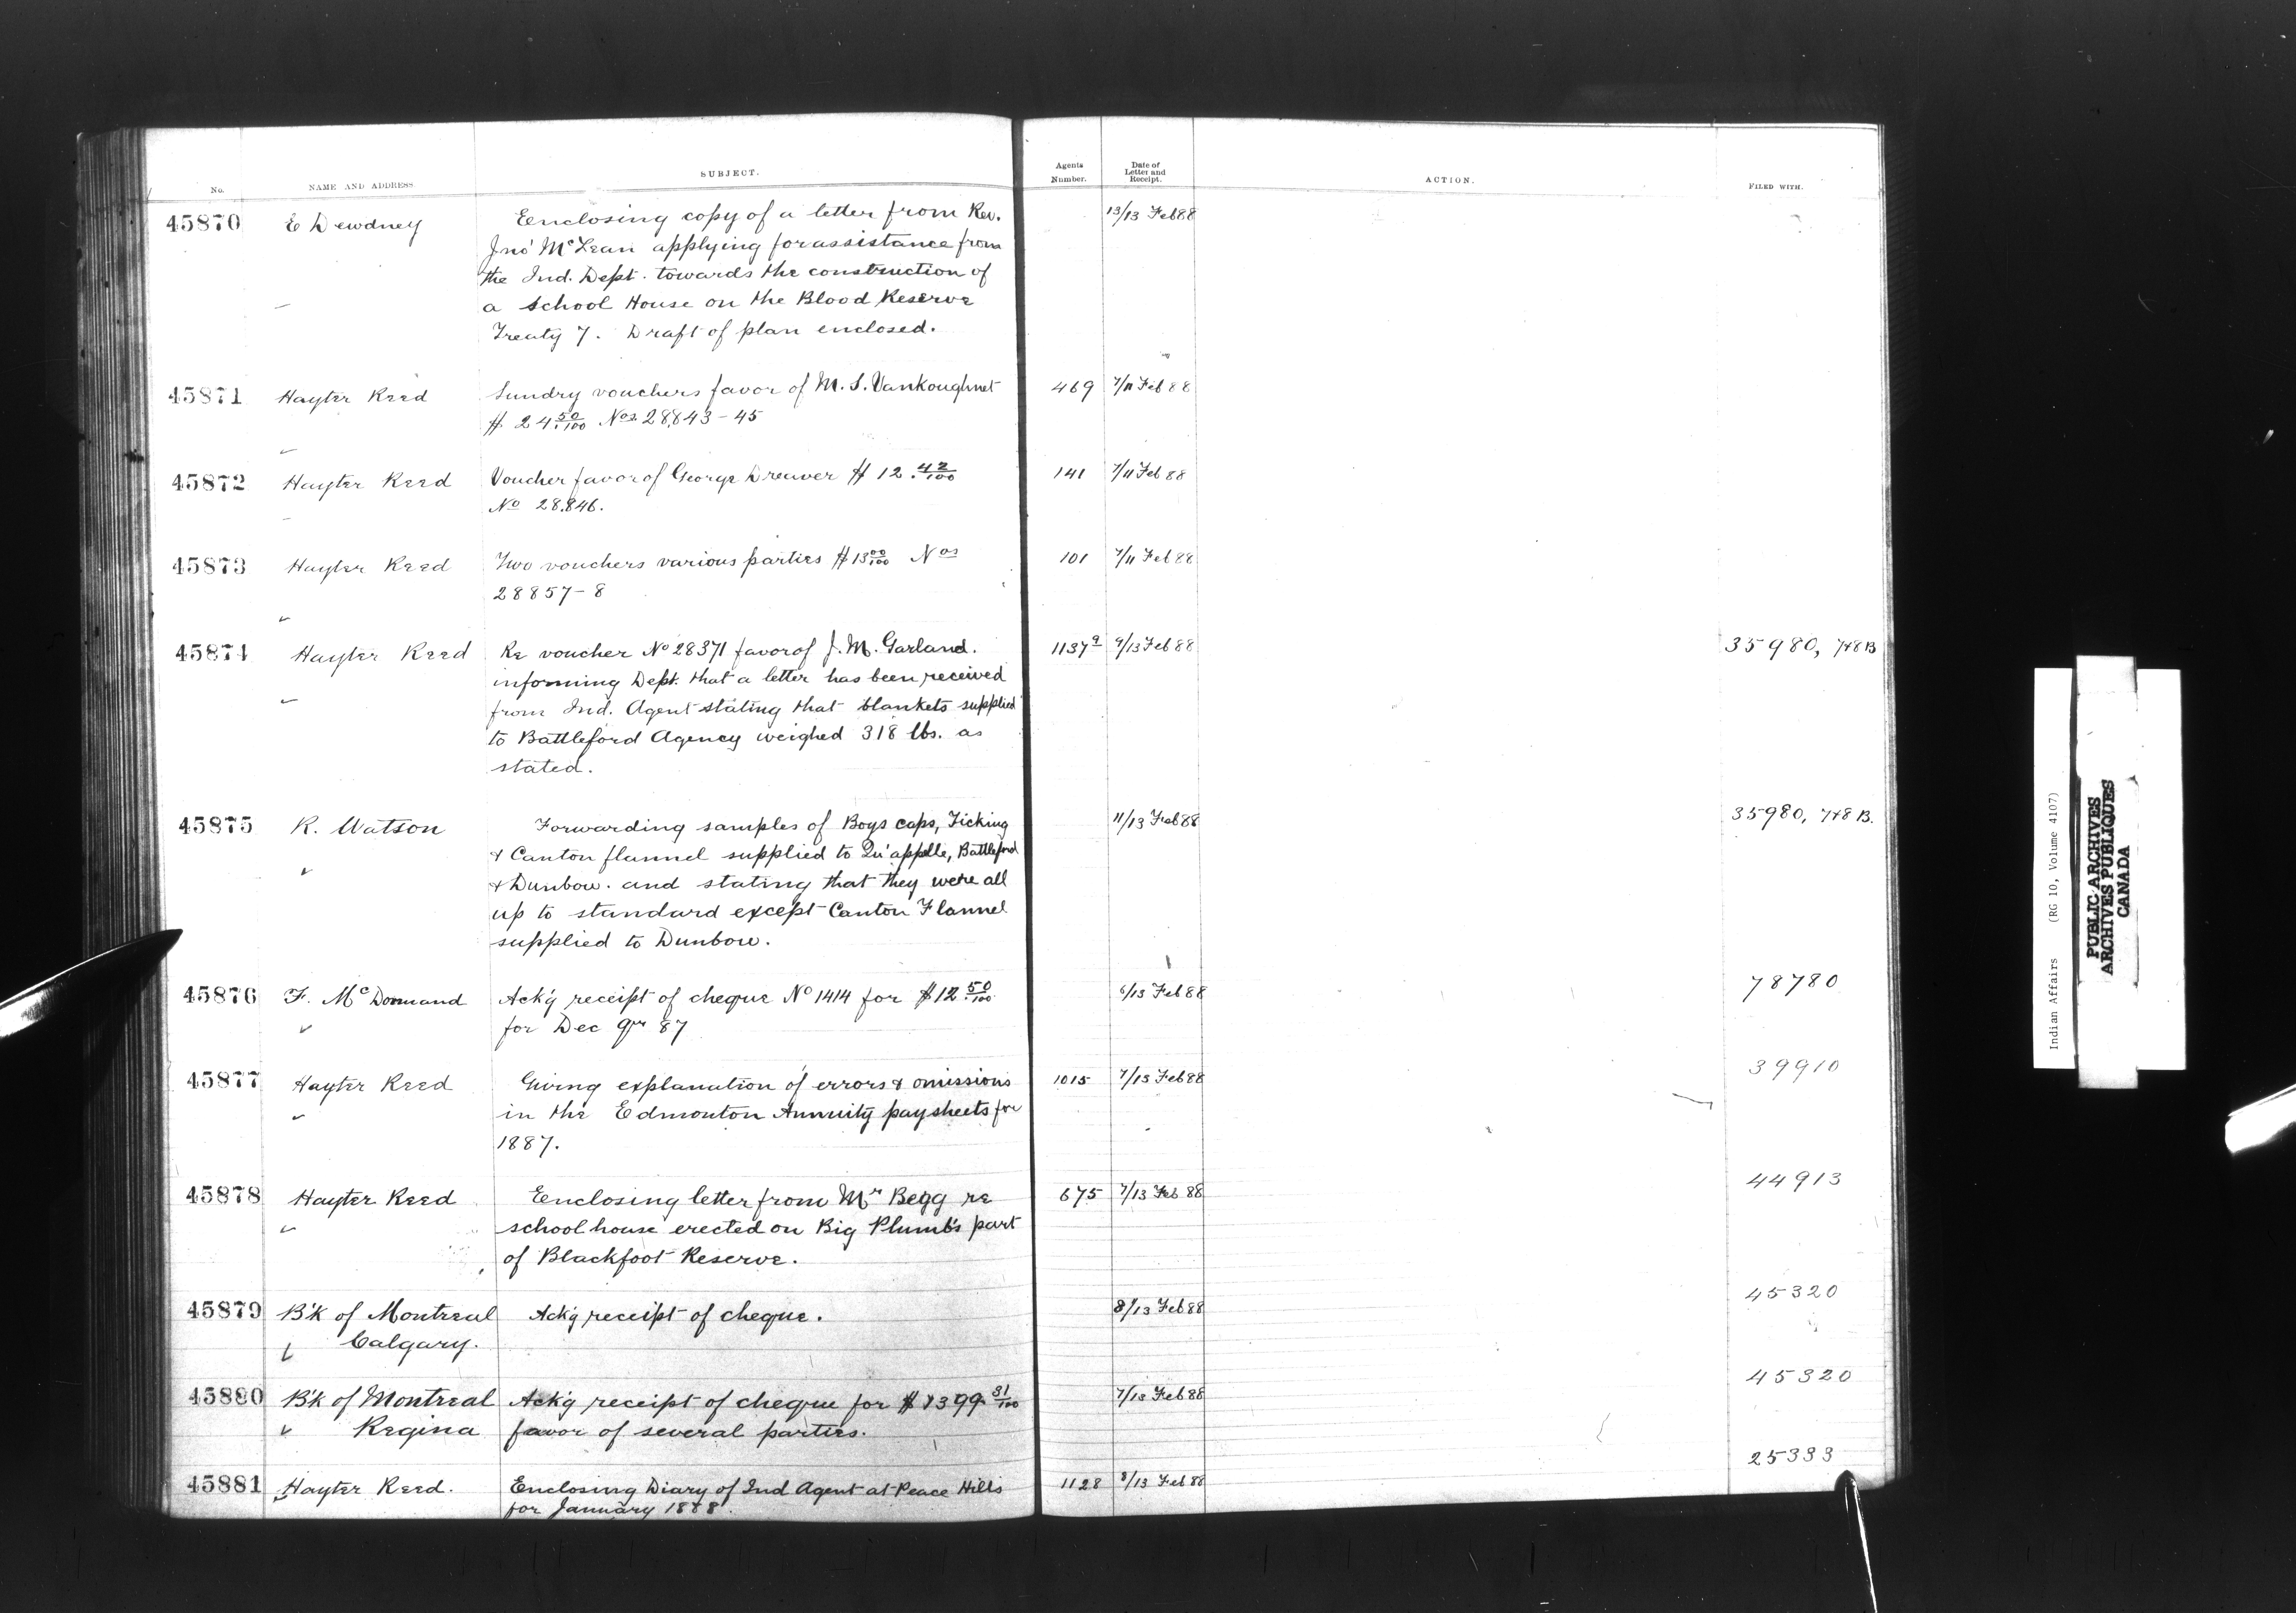 No.
NAME AND ADDRESS
SUBJECT.
Agents
Number.
Date of
Letter and
Receipt.
ACTION.
FILED WITH.
45870 E Dewdney Eenclosing copy of a letter from Rev. 13/13 Feb 88
Jno' McLean applying for assistance from
the Ind. Dept. towards the construction of
a School House on the Blood Reserve
Treaty 7. Draft of plan enclosed.
45871 Hayter Reed Sundry vouchers favor of M. S. Vankoughnet 469 7/11 Feb 88
$ 24 50/100 Nos. 28,843-45
45872 Hayter Reed Voucher favor of George Dreaver $ 12. 42/100 141 7/11 Feb 88
No 28.846.
45873 Hayter Reed Two vouchers various parties $13 00/100 Nos 101 7/11 Feb 88
28857-8
45874 Hayter Reed Re voucher No 28371 favor of J. M. Garland. 1137 a 9/13 Feb 88 35980, 748 B
informing Dept. that a letter has been received
from Ind. Agent stating that blankets supplied
to Battleford Agency weighed 318 lbs. as
stated.
45875 R. Watson Forwarding samples of Boys caps, Ticking 11/13 Feb 88 35980, 748 B.
& Canton flannel supplied to Qu'appelle, Battleford
& Dunbow. and stating that they were all
up to standard except Canton Flannel
supplied to Dunbow.
45876 F. McDonnand Ack'g receipt of cheque No 1414 for $12. 50/100 6/13 Feb 88 78780
for Dec qr 87
45877 Hayter Reed Giving explanation of errors & omissions 1015 7/13 Feb 88 39910
in the Edmonton Annuity paysheets for
1887.
45878 Hayter Reed Eenclosing letter from Mr Begg re 675 7/13 Feb 88 44913
school house erected on Big Plumb's part
of Blackfoot Reserve.
45879 B'k of Montreal Ack'g receipt of cheque. 8/13 Feb 88 45320
Calgary.
45880 B'k of Montreal Ack'g receipt of cheque for $ 1399. 31/100 7/13 Feb 88 45320
Regina favor of several parties.
45881 Hayter Reed. Enclosing Diary of Ind Agent at Peace Hills 1128 8/13 Feb 88 25333
for January 1888.
Indian Affairs (RG 10, Volume 4107)
PUBLIC ARCHIVES
ARCHIVES PUBLIQUES
CANADA